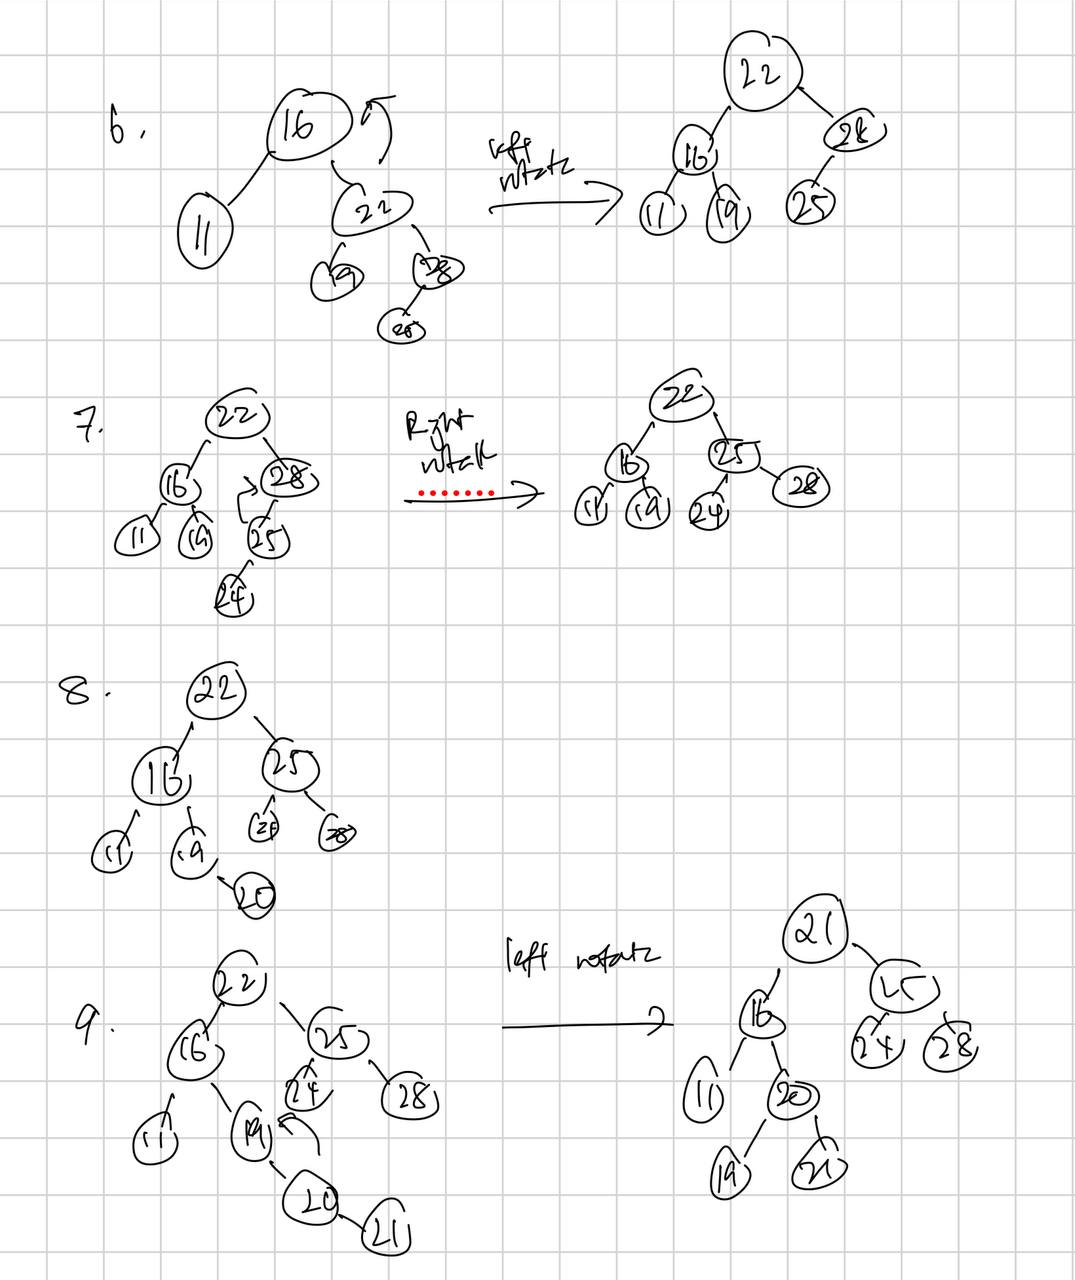 6.
16
11
22
19
28
25
left
rotate
22
16
28
11
19
25
7.
22
16
28
11
19
25
24
Right
rotate
22
16
25
11
19
24
28
8.
22
16
25
11
19
24
28
20
9.
22
16
25
11
19
24
28
20
21
left rotate
21
16
25
11
20
24
28
19
21